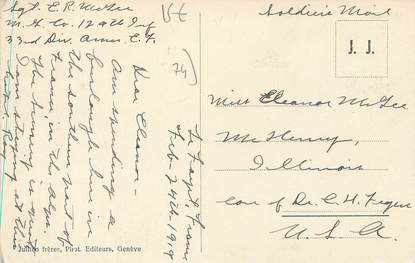 Sgt. E. R. McGee
M. G. Co. 129th Inf
33rd Div. Amer. E. F.
Soldier's Mail
J. J.
74
Le Fayet, France
Feb-24th-1919
Dear Eleanor-
Am spending a
furlough here in
the southern part of
France, in the alps.
The scenery is great
I am staying at this
hotel. Ray
Miss Eleanor McGee
McHenry,
Illinois
Care of Dr. C. H. Fegers
U. S. A.
Jullien frères, Phot. Editeurs, Genève